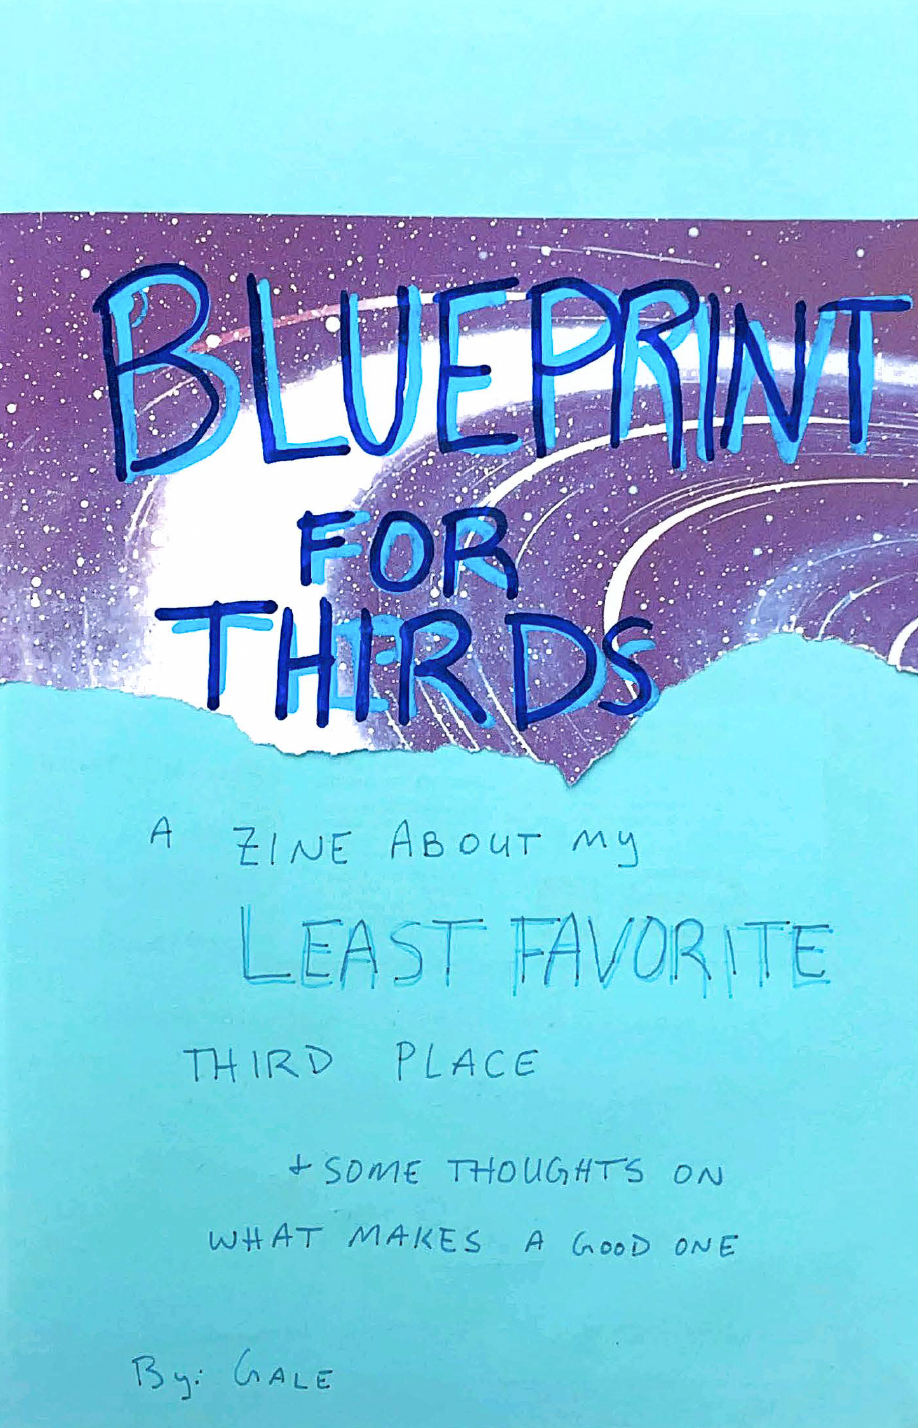 BLUEPRINT
FOR
THIRDS
A ZINE ABOUT MY
LEAST FAVORITE
THIRD PLACE
+ SOME THOUGHTS ON
WHAT MAKES A GOOD ONE
By: GALE